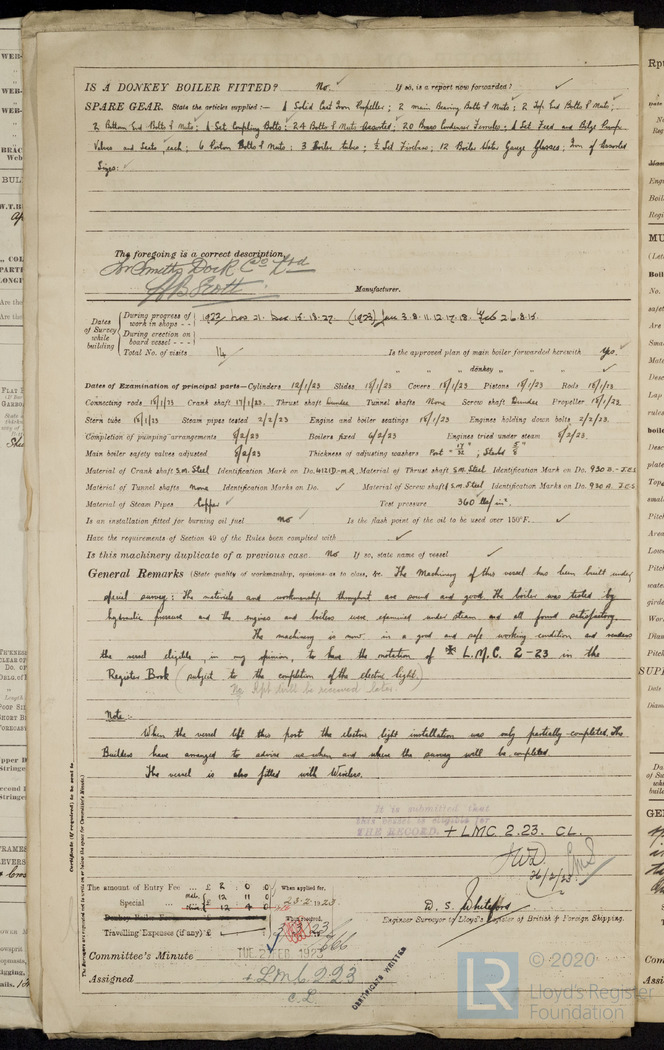 IS A DONKEY BOILER FITTED? No. If so, is a report now forwarded?
SPARE GEAR. State the articles supplied:— 1 Solid Cast Iron Propeller; 2 main Bearing Bolts & Nuts; 2 Top End Bolts & Nuts;
2 Bottom End Bolts & Nuts; 1 Set Coupling Bolts; 24 Bolts & Nuts Assorted; 20 Brass Condenser Ferrules; 1 Set Feed and Bilge Pump
Valves and Seats, each; 6 Piston Bolts & Nuts; 3 Boiler tubes; ½ Set Firebars; 12 Boiler Water Gauge Glasses; Iron of Assorted
Sizes.
The foregoing is a correct description,
For Smiths Dock Co Ltd
Scott
Manufacturer.
Dates of Survey while building
During progress of work in shops - - 1922 Nov 21. Dec 15. 18. 27. (1923) Jan 3. 8. 11. 12. 17. 18. Feb 2. 6. 8. 15.
During erection on board vessel - - -
Total No. of visits 14 Is the approved plan of main boiler forwarded herewith Yes.
" " " donkey " " "
Dates of Examination of principal parts—Cylinders 12/1/23 Slides 18/1/23 Covers 18/1/23 Pistons 18/1/23 Rods 18/1/23
Connecting rods 18/1/23 Crank shaft 17/1/23 Thrust shaft Dundee Tunnel shafts None Screw shaft Dundee Propeller 18/1/23
Stern tube 18/1/23 Steam pipes tested 2/2/23 Engine and boiler seatings 18/1/23 Engines holding down bolts 2/2/23
Completion of pumping arrangements 8/2/23 Boilers fixed 6/2/23 Engines tried under steam 8/2/23
Main boiler safety valves adjusted 8/2/23 Thickness of adjusting washers Port 17/32"; Starbd 5/8"
Material of Crank shaft S.M. Steel Identification Mark on Do. 4121D-M.R. Material of Thrust shaft S.M. Steel Identification Mark on Do. 930 B-J.E.S
Material of Tunnel shafts None Identification Marks on Do. Material of Screw shafts S.M. Steel Identification Marks on Do. 930 A. J.E.S
Material of Steam Pipes Copper Test pressure 360 lbs/in².
Is an installation fitted for burning oil fuel No Is the flash point of the oil to be used over 150°F.
Have the requirements of Section 49 of the Rules been complied with
Is this machinery duplicate of a previous case. No If so, state name of vessel
General Remarks (State quality of workmanship, opinions as to class, &c. The Machinery of this vessel has been built under
special survey: The materials and workmanship throughout are sound and good. The boiler was tested by
hydraulic pressure and the engines and boilers were examined under steam and all found satisfactory.
The machinery is now in a good and safe working condition and renders
the vessel eligible, in my opinion, to have the notation of ✠ L.M.C. 2-23 in the
Register Book (subject to the completion of the electric light.)
Rpt will be received later.
Note:—
When the vessel left this port the electric light installation was only partially completed. The
Builders have arranged to advise us when and where the survey will be completed.
The vessel is also fitted with Wireless.
It is submitted that
this vessel is eligible for
THE RECORD. + LMC 2.23. CL.
26/2/23
The amount of Entry Fee ... £ 2 : 0 : 0 When applied for,
Special ... £ 12 : 11 : 0
12 : 4 : 0 23-2-1923
Donkey Boiler Fee ... £ When received,
Travelling Expenses (if any) £ 3/3/23
D. S. Whiteford
Engineer Surveyor to Lloyd's Register of British & Foreign Shipping.
Committee's Minute TUE. 27 FEB 1923
Assigned + LMC 2.23
C.L
CERTIFICATE WRITTEN
LR © 2020
Lloyd's Register
Foundation